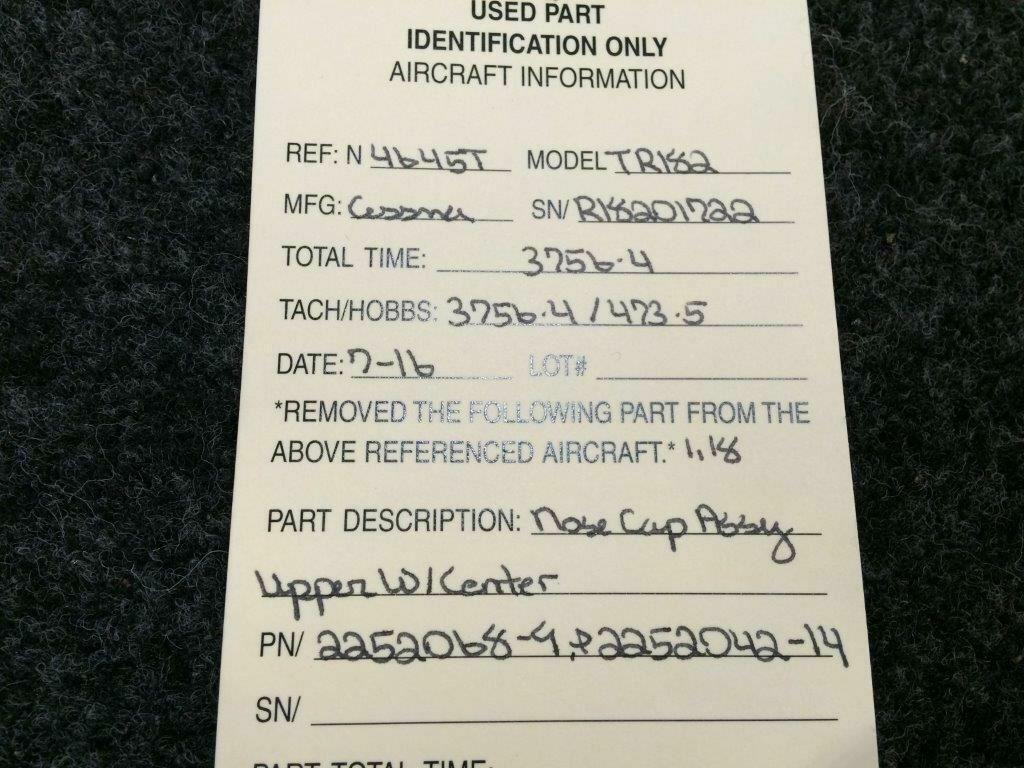 USED PART
IDENTIFICATION ONLY
AIRCRAFT INFORMATION
REF: N 4645T MODEL TR182
MFG: Cessna SN/ R18201722
TOTAL TIME: 3756.4
TACH/HOBBS: 3756.4 / 473.5
DATE: 7-16 LOT#
*REMOVED THE FOLLOWING PART FROM THE
ABOVE REFERENCED AIRCRAFT.* 1,18
PART DESCRIPTION: Nose Cap Assy
Upper W/Center
PN/ 2252068-4, & 2252042-14
SN/
PART TOTAL TIME: